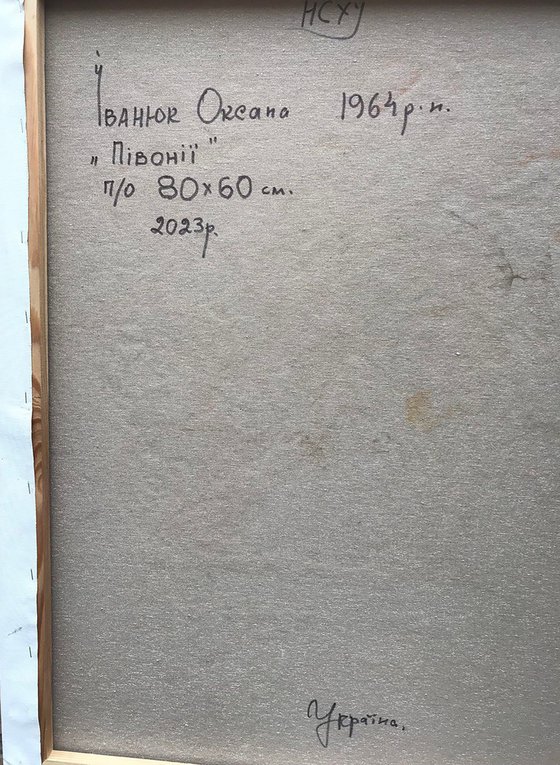 НСХУ
Іванюк Оксана 1964 р.н.
„Півонії"
п/о 80х60 см.
2023р.
Україна.